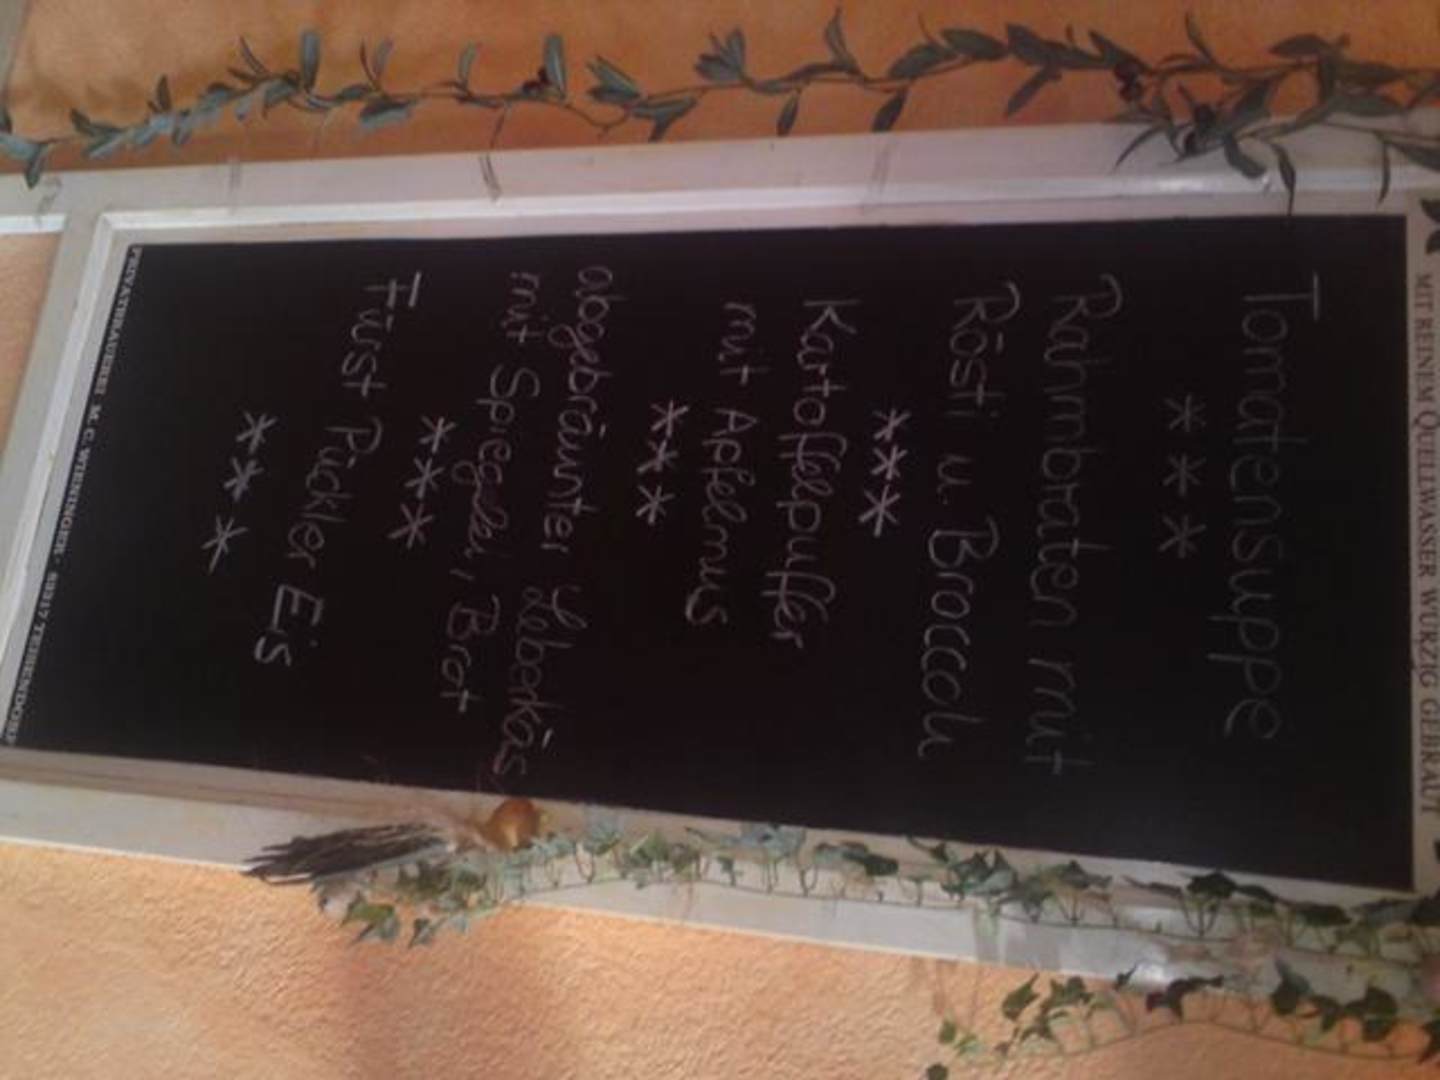 MIT REINEM QUELLWASSER WÜRZIG GEBRAUT
Tomatensuppe
***
Rahmbraten mit
Rösti u. Broccoli
***
Kartoffelpuffer
mit Apfelmus
***
abgebräunter Leberkäs
mit Spiegelei, Brot
***
Fürst Pückler Eis
***
PRIVATBRAUEREI M. C. WIENINGER · 83317 TEISENDORF